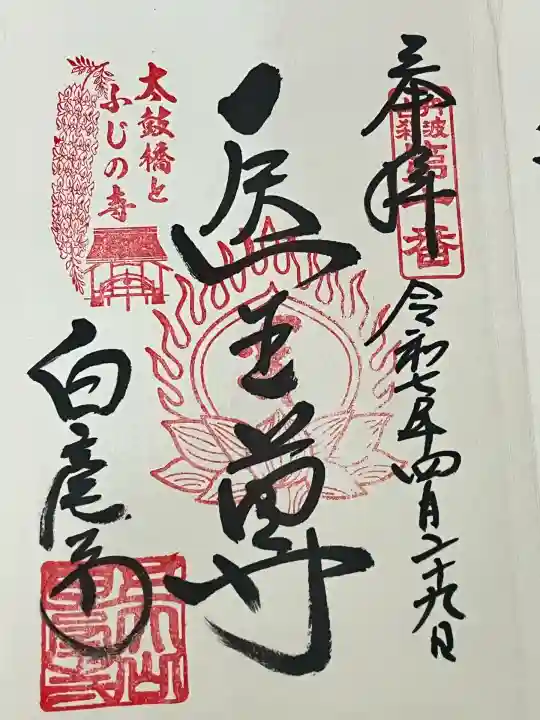 奉拝
丹波
古刹
第一番
令和七年四月二十九日
医王尊
太鼓橋と
ふじの寺
白毫寺